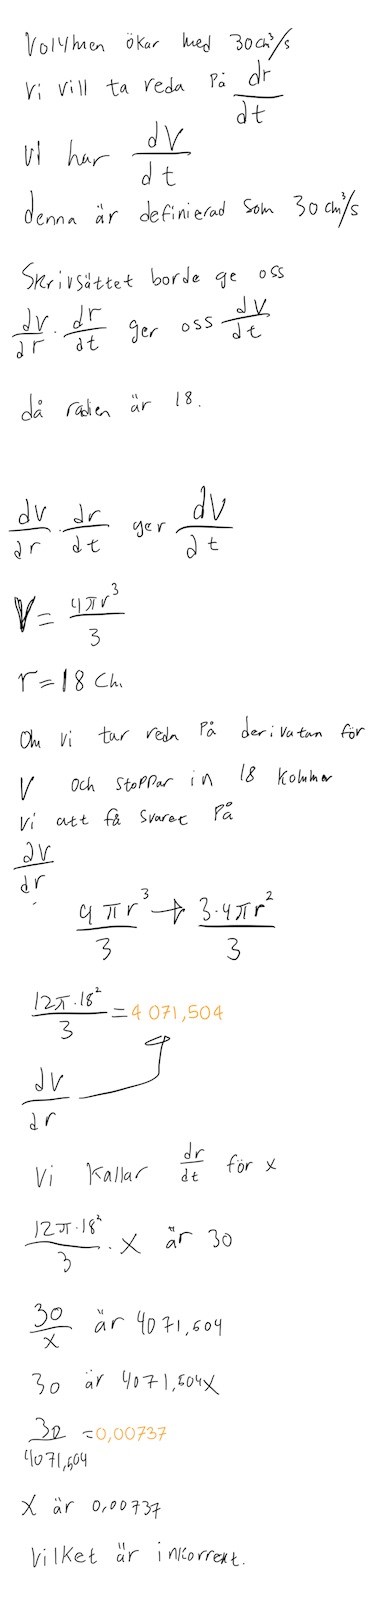 Volymen ökar med 30cm³/s
Vi vill ta reda på dr/dt
Vi har dV/dt
denna är definierad som 30 cm³/s
Skrivsättet borde ge oss
dV/dr · dr/dt ger oss dV/dt
då radien är 18.
dV/dr · dr/dt ger dV/dt
V = 4πr³/3
r = 18 cm.
Om vi tar reda på derivatan för
V och stoppar in 18 kommer
vi att få svaret på
dV/dr
4πr³/3 → 3·4πr²/3
12π·18²/3 = 4 071,504
dV/dr
Vi kallar dr/dt för x
12π·18²/3 · x är 30
30/x är 4071,504
30 är 4071,504x
30/4071,504 = 0,00737
x är 0,00737
Vilket är inkorrekt.